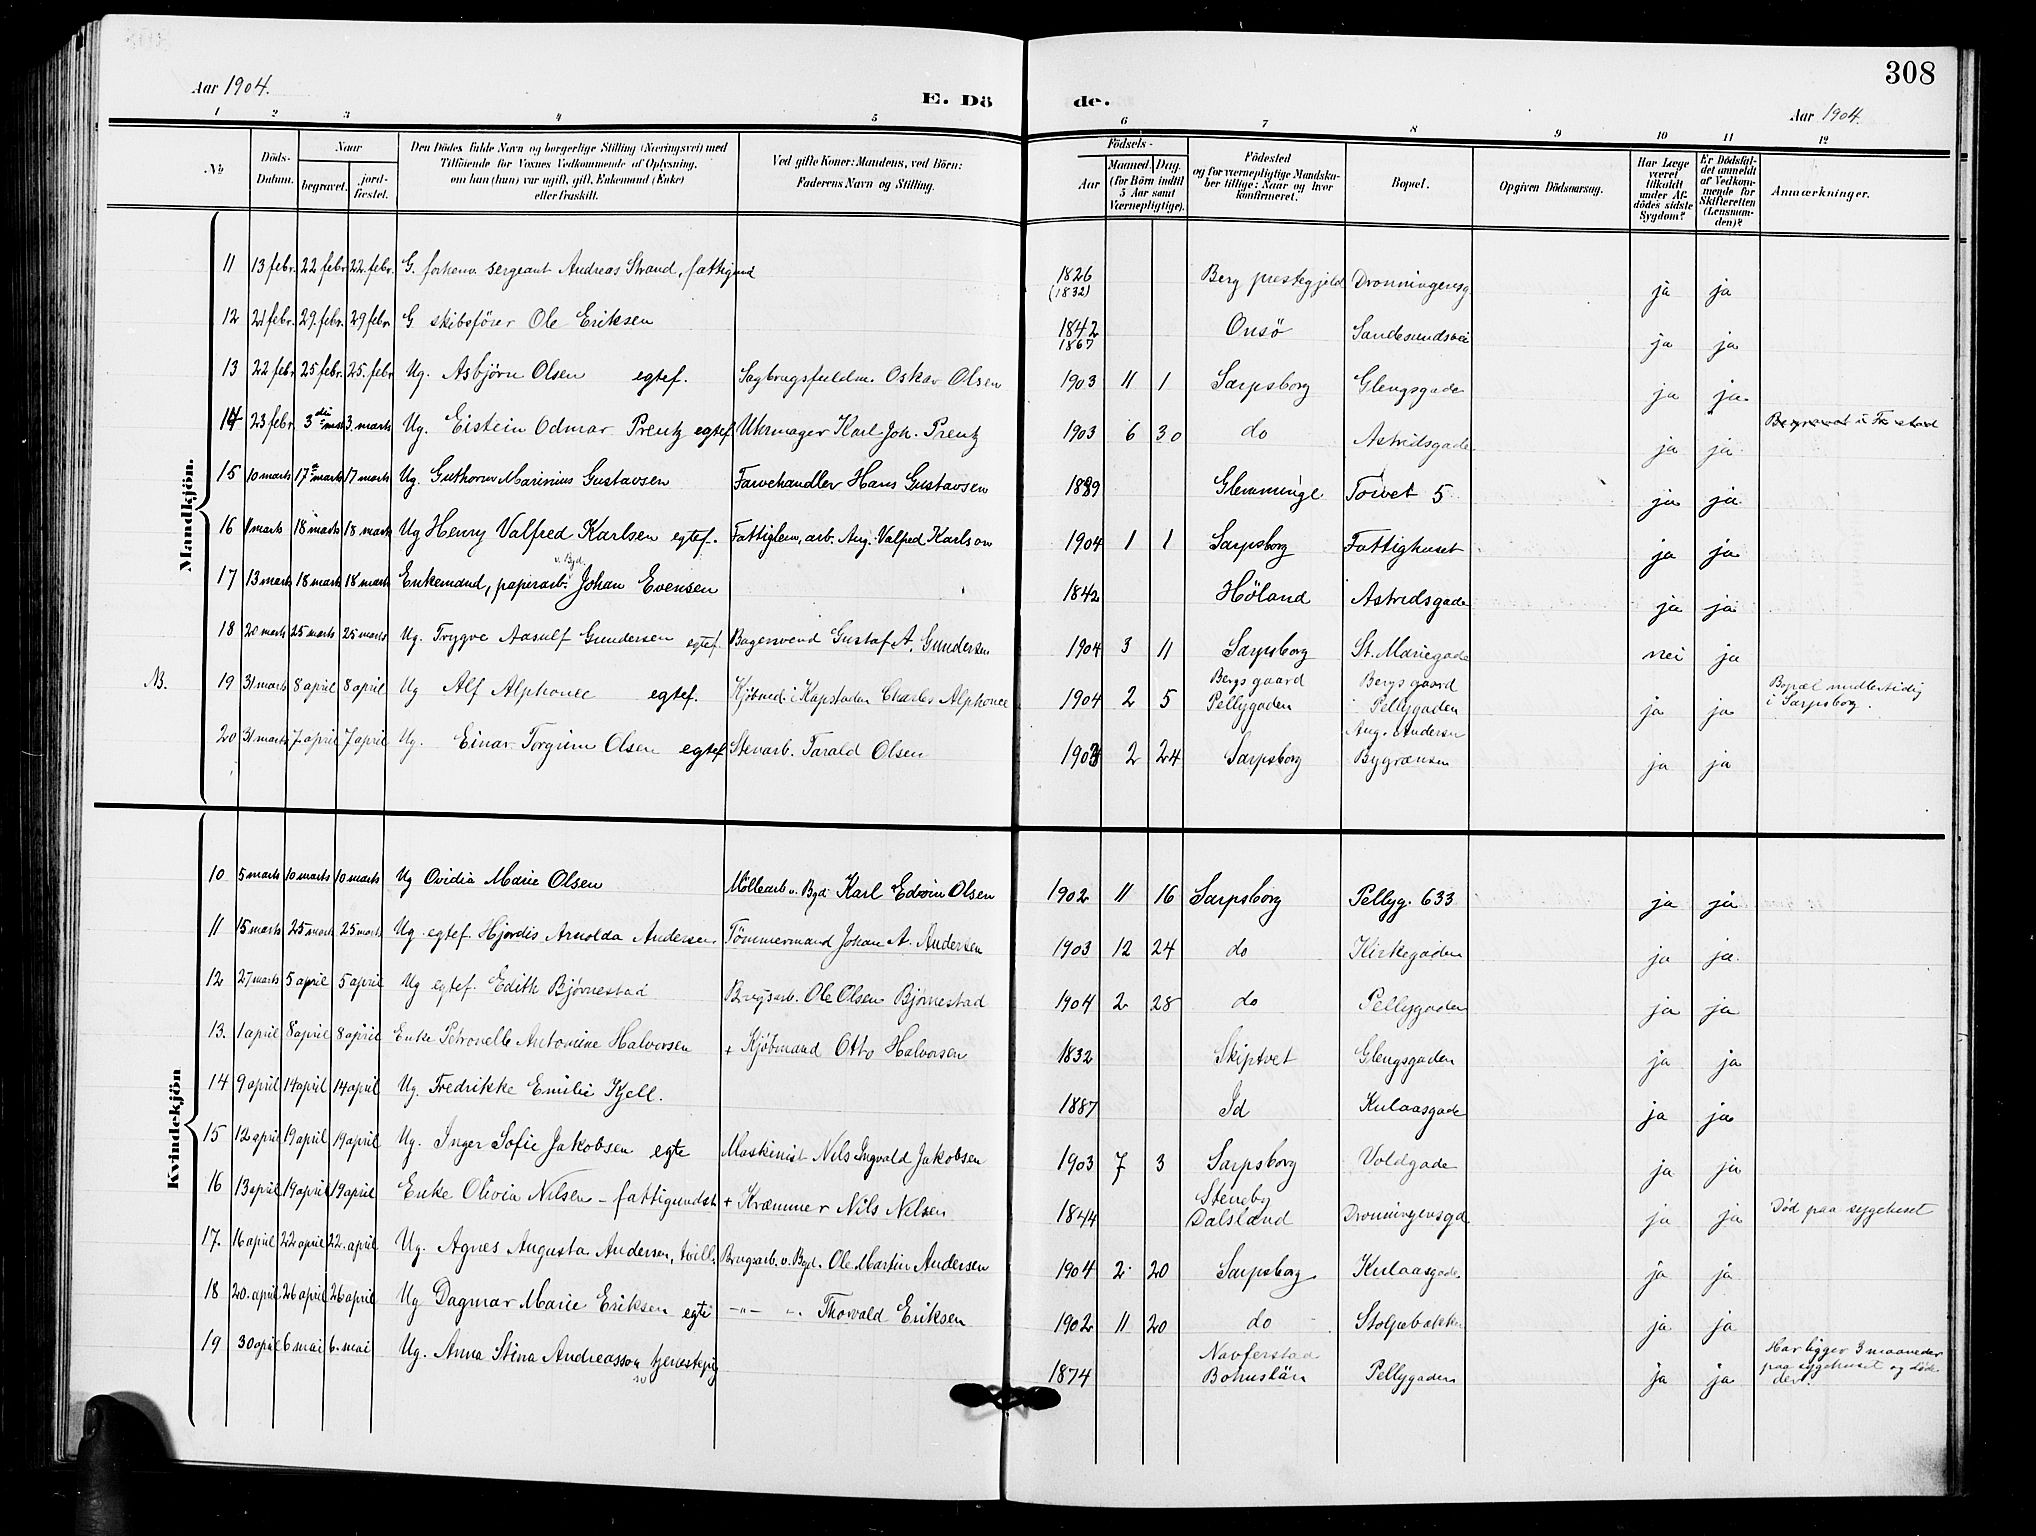 Aar 1904.
E. Dö de.
Aar 1904.
308
1 2 3 4 5 6 7 8 9 10 11 12
No
Döds-Datum.
Naar
begravet.
jord-fæstet.
Den Dödes fulde Navn og borgerlige Stilling (Næringsvei) med
Tilföiende for Voxnes Vedkommende af Oplysning,
om han (hun) var ugift, gift, Enkemand (Enke)
eller fraskilt.
Ved gifte Koner: Mandens, ved Börn:
Faderens Navn og Stilling.
Födsels-
Aar
Maaned. Dag.
(for Börn indtil
5 Aar samt
Værnepligtige).
Födested
og for værnepligtige Mandska-
ber tillige: Naar og hvor
konfirmeret.
Bopæl.
Opgiven Dödsaarsag.
Har Læge
været
tilkaldt
under Af-
dödes sidste
Sygdom?
Er Dödsfal-
det anmeldt
af Vedkom-
mende for
Skifteretten
(Lensman-
den)?
Anmærkninger.
Mandkjön.
11 13 febr. 22 febr 22. febr. G. forhenv. sergeant Andreas Strand, fattigund 1826 (1832) Berg prestegjeld Dronningensg ja ja
12 21 febr. 29. febr. 29 febr. G skibsfører Ole Eriksen 1842 1867 Onsö Sandesundsvei ja ja
13 22 febr 25 febr. 25. febr Ug. Asbjørn Olsen egtef. Sagbrugsfuldm. Oskar Olsen 1903 11 1 Sarpsborg Glengsgade ja ja
14 23 febr. 3die marts 3. marts Ug. Eistein Odmar Prentz egtef Uhrmager Karl Joh. Prentz 1903 6 30 do Astridsgade ja ja
15 10 marts 17 marts 17 marts Ug. Guthorm Marinius Gustavsen Farvehandler Hans Gustavsen 1889 Glemminge Torvet 5 ja ja
16 11 marts 18 marts 18 marts Ug Henry Valfred Karlsen egtef. Fattiglem, arb. Aug. Valfred Karlson 1904 1 1 Sarpsborg Fattighuset ja ja
17 13 marts 18 marts 18 marts Enkemand, papirarb. v. Byd. Johan Evensen 1842 Höland Astridsgade ja ja
18 20 marts 25 marts 25 marts Ug. Trygve Aasulf Gundersen egtef. Bagersvend Gustaf A. Gundersen 1904 3 11 Sarpsborg St. Mariegade nei ja
NB. 19 31 marts 8 april 8 april Ug Alf Alphonce egtef. Kjøbmd. i Kapstaden Charles Alphonce 1904 2 5 Bergsgaard Pellygaden Bergsgaard Pellygaden ja ja Bopæl midlertidig i Sarpsborg.
20 31 marts 7 april 7 april Ug. Einar Torgrim Olsen egtef Stenarb. Tarald Olsen 1903 2 24 Sarpsborg Aug. Andersen Bygrænsen ja ja
Kvindekjön
10 5 marts 10 marts 10 marts Ug Ovidia Marie Olsen Møllearb v. Byd Karl Edvin Olsen 1902 11 16 Sarpsborg Pellyg. 633 ja ja
11 15 marts 25 marts 25 marts Ug. egtef. Hjørdis Arnolda Andersen Tömmermand Johan A. Andersen 1903 12 24 do Kirkegaden ja ja
12 27 marts 5 april 5 april Ug egtef. Edith Bjørnestad Brugsarb. Ole Olsen Bjørnestad 1904 2 28 do Pellygaden ja ja
13. 1 april 8 april 8 april Enke Petronelle Antonine Halvorsen + Kjöbmand Otto Halvorsen 1832 Skiptvet Glengsgaden ja ja
14 9 april 14 april 14 april Ug. Fredrikke Emilie Kjell. 1887 Id Kulaasgade ja ja
15 12 april 19 april 19 april Ug. Inger Sofie Jakobsen egte Maskinist Nils Ingvald Jakobsen 1903 7 3 Sarpsborg Voldgade ja ja
16 13 april 19 april 19 april Enke Olivia Nilsen - fattigundst. + Kræmmer Nils Nilsen 1844 Steneby Dalsland Dronningensgd ja ja Død paa sygehuset
17. 16 april 22 april 22. april Ug. Agnes Augusta Andersen, tvill. Brugsarb. v. Byd. Ole Martin Andersen 1904 2 20 Sarpsborg Kulaasgade ja ja
18 20. april 26 april 26 april Ug Dagmar Marie Eriksen egte -"- " Thorvald Eriksen 1902 11 20 do Stolpebakken ja ja
19 30 april 6 mai 6. mai Ug. Anna Stina Andreasson tjenestepig 1874 Navferstad Bohuslän Pellygaden ja ja Har ligget 3 maaneder paa sygehuset og døde der.